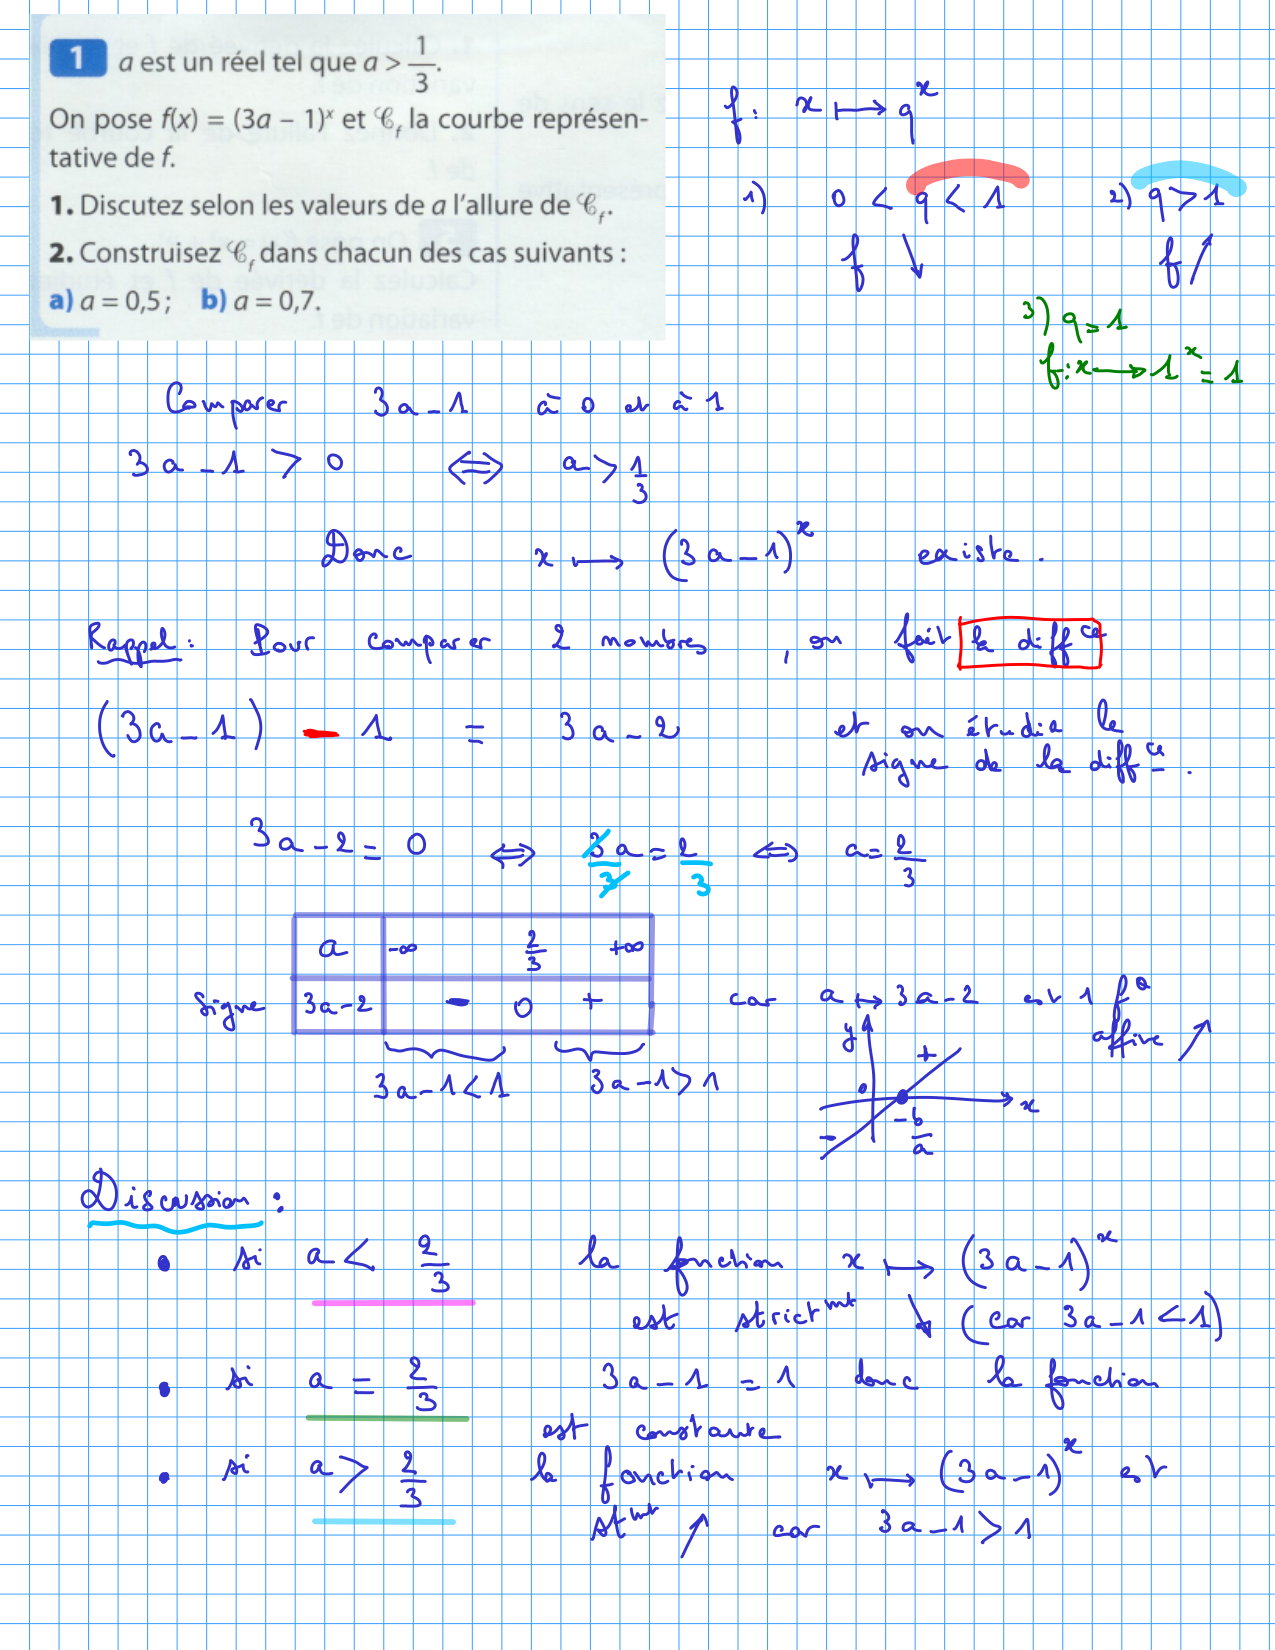 1 a est un réel tel que a > 1/3.
On pose f(x) = (3a – 1)ˣ et 𝒞f la courbe représen-
tative de f.
1. Discutez selon les valeurs de a l'allure de 𝒞f.
2. Construisez 𝒞f dans chacun des cas suivants :
a) a = 0,5 ; b) a = 0,7.
f: x ⟼ qˣ
1) 0 < q < 1 2) q > 1
f ↘ f ↗
3) q = 1
f: x ⟶ 1ˣ = 1
Comparer 3a - 1 à 0 et à 1
3a - 1 > 0 ⟺ a > 1/3
Donc x ⟼ (3a - 1)ˣ existe.
Rappel : Pour comparer 2 nombres, on fait la diffce
(3a - 1) - 1 = 3a - 2 et on étudie le
signe de la diffce.
3a - 2 = 0 ⟺ 3a/3 = 2/3 ⟺ a = 2/3
a -∞ 2/3 +∞
Signe 3a - 2 - 0 + car a ↦ 3a - 2 est 1 f° affine ↗
3a - 1 < 1 3a - 1 > 1
y + 0 x - -b/a
Discussion :
• si a < 2/3 la fonction x ⟼ (3a - 1)ˣ
est strictmt ↘ (car 3a - 1 < 1)
• si a = 2/3 3a - 1 = 1 donc la fonction
est constante
• si a > 2/3 la fonction x ⟼ (3a - 1)ˣ est
stmt ↗ car 3a - 1 > 1